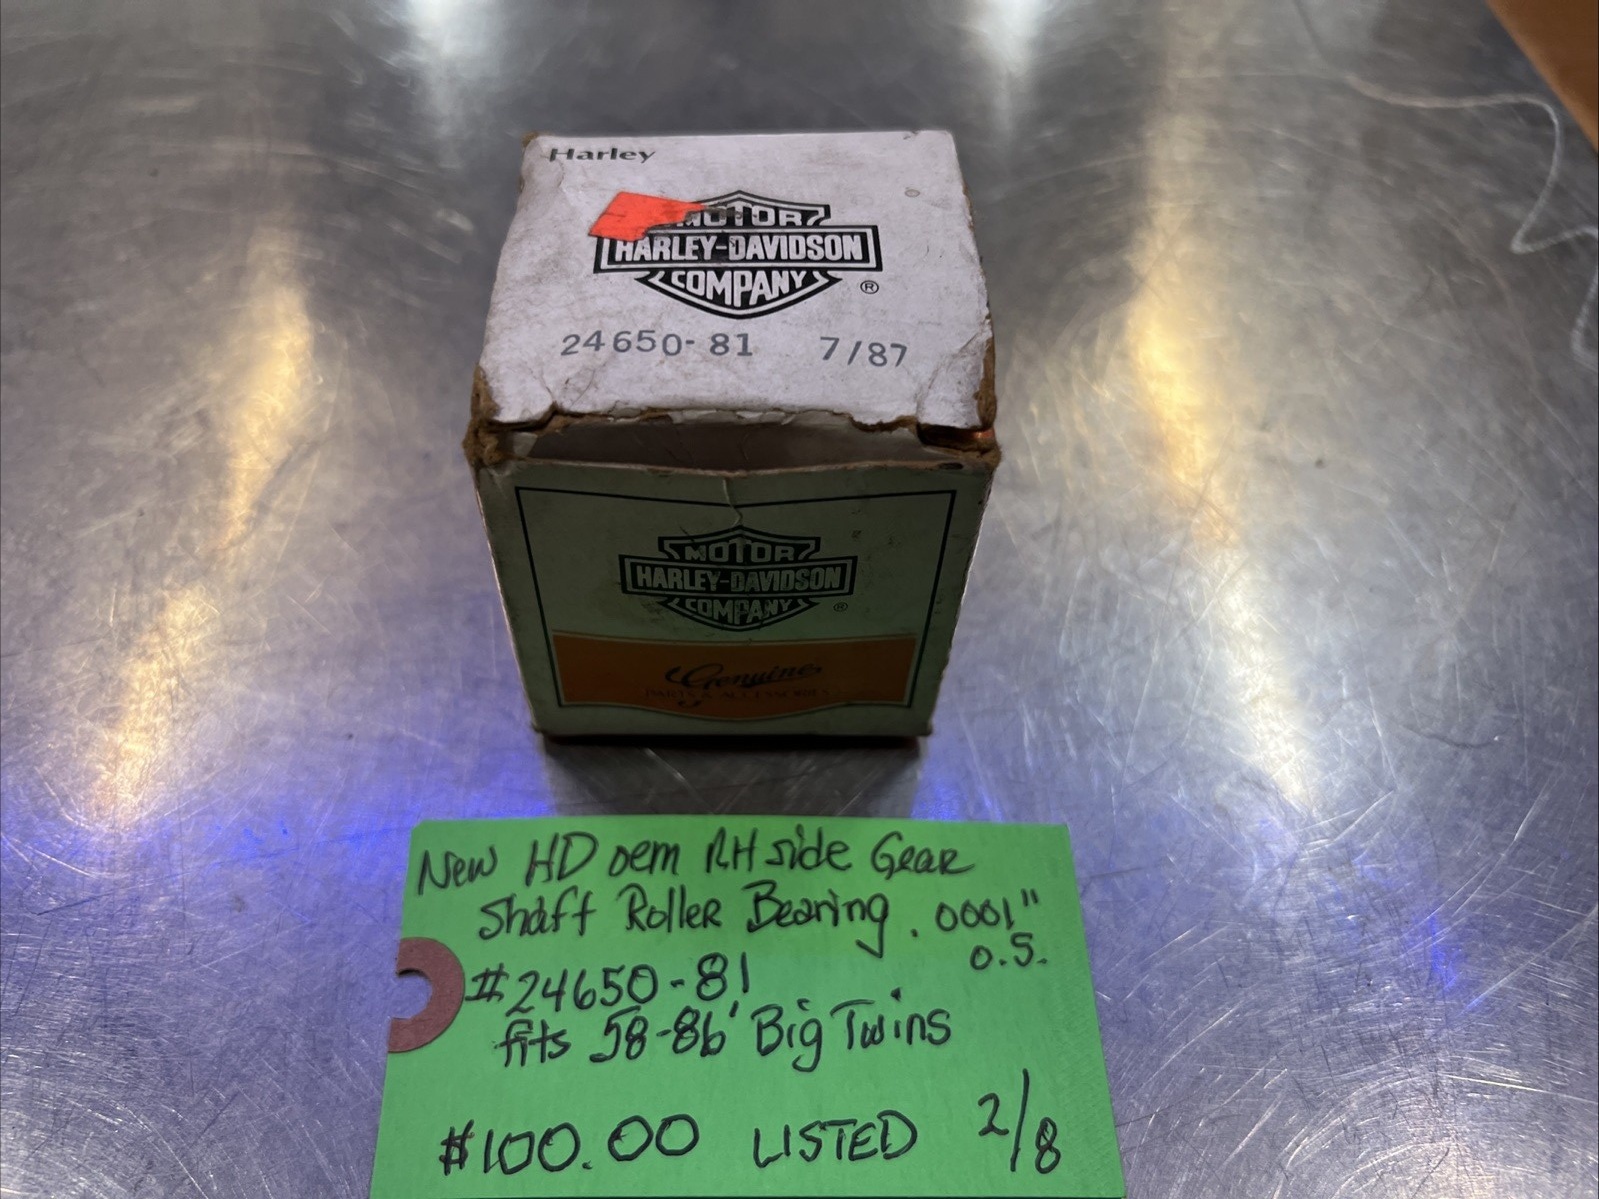 Harley
MOTOR
HARLEY-DAVIDSON
COMPANY ®
24650-81 7/87
MOTOR
HARLEY-DAVIDSON
COMPANY ®
Genuine
PARTS & ACCESSORIES
New HD oem RH side Gear
Shaft Roller Bearing . 0001"
o.s.
#24650-81
fits 58-86' Big Twins
$100.00 LISTED 2/8